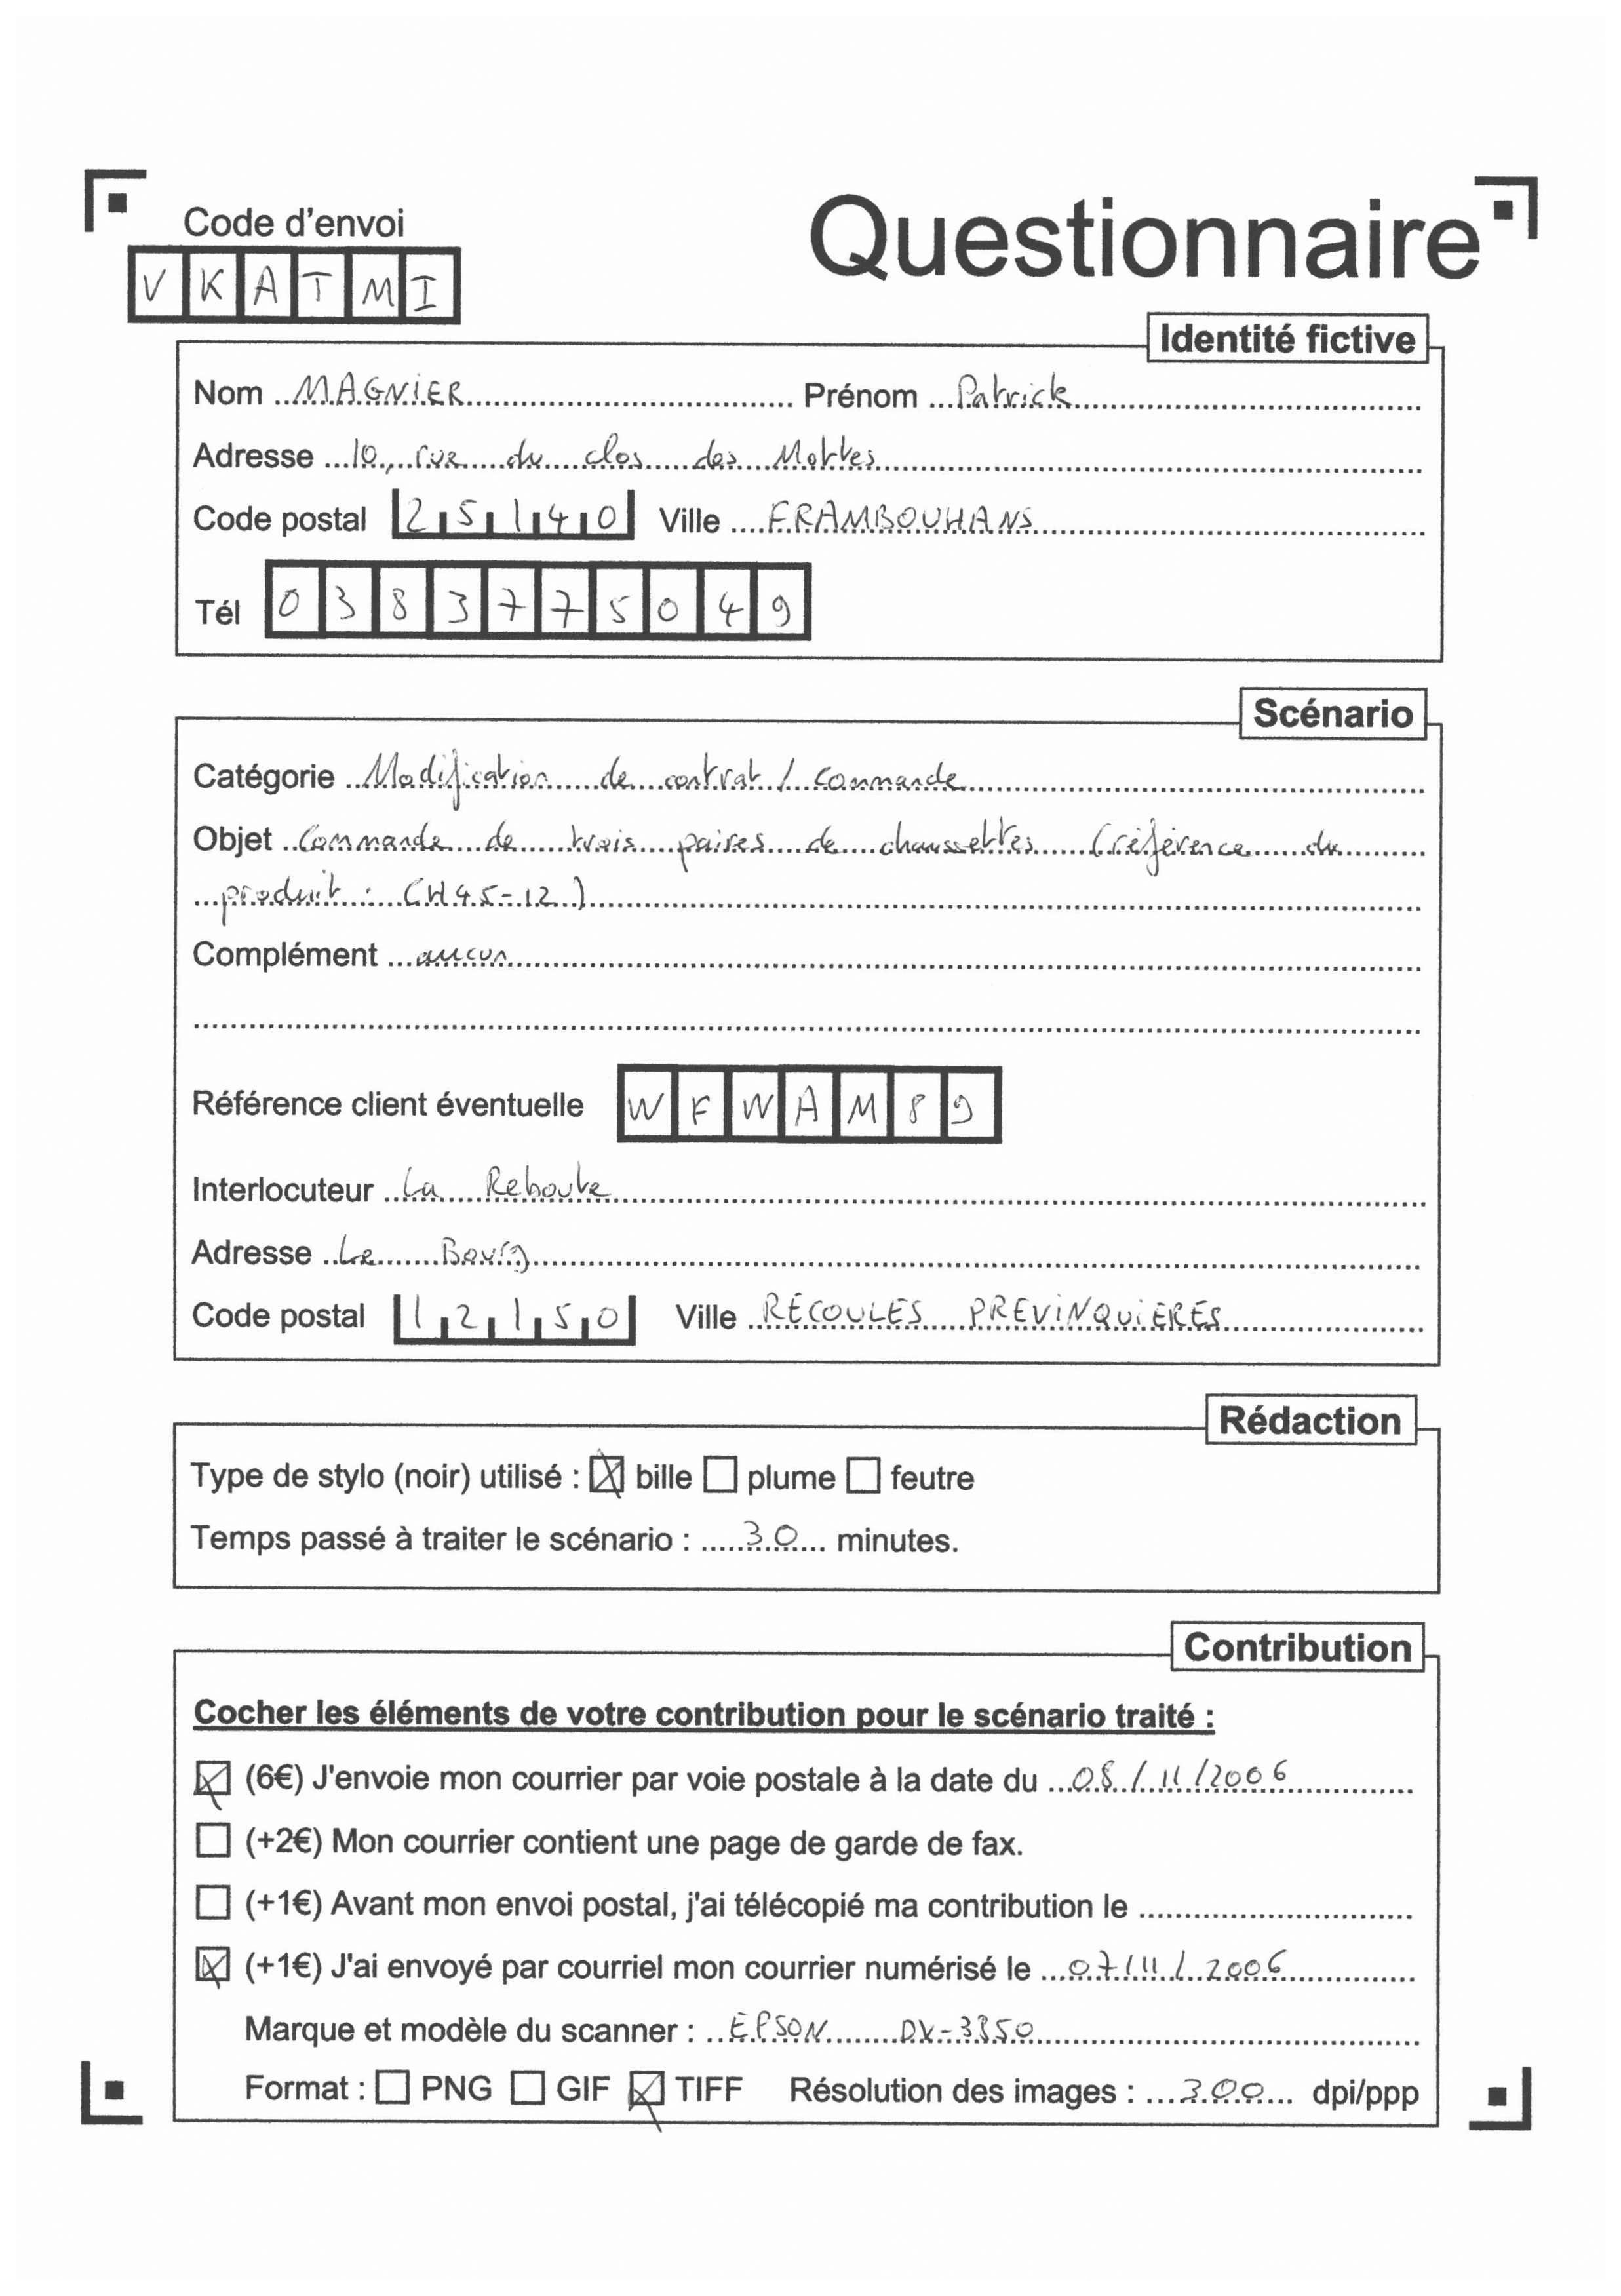 Code d'envoi
Questionnaire
VKATMI
Identité fictive
Nom MAGNIER Prénom Patrick
Adresse 10, rue du clos des Mottes
Code postal 25140 Ville FRAMBOUHANS
Tél 0383775049
Scénario
Catégorie Modification de contrat / commande
Objet Commande de trois paires de chaussettes (référence du
produit : CH45-12)
Complément aucun
Référence client éventuelle WFWAM89
Interlocuteur La Reboute
Adresse Le Bourg
Code postal 12150 Ville RECOULES PREVINQUIERES
Rédaction
Type de stylo (noir) utilisé : ☒ bille ☐ plume ☐ feutre
Temps passé à traiter le scénario : 30 minutes.
Contribution
Cocher les éléments de votre contribution pour le scénario traité :
☒ (6€) J'envoie mon courrier par voie postale à la date du 08/11/2006
☐ (+2€) Mon courrier contient une page de garde de fax.
☐ (+1€) Avant mon envoi postal, j'ai télécopié ma contribution le
☒ (+1€) J'ai envoyé par courriel mon courrier numérisé le 07/11/2006
Marque et modèle du scanner : EPSON DX-3850
Format : ☐ PNG ☐ GIF ☒ TIFF Résolution des images : 300 dpi/ppp